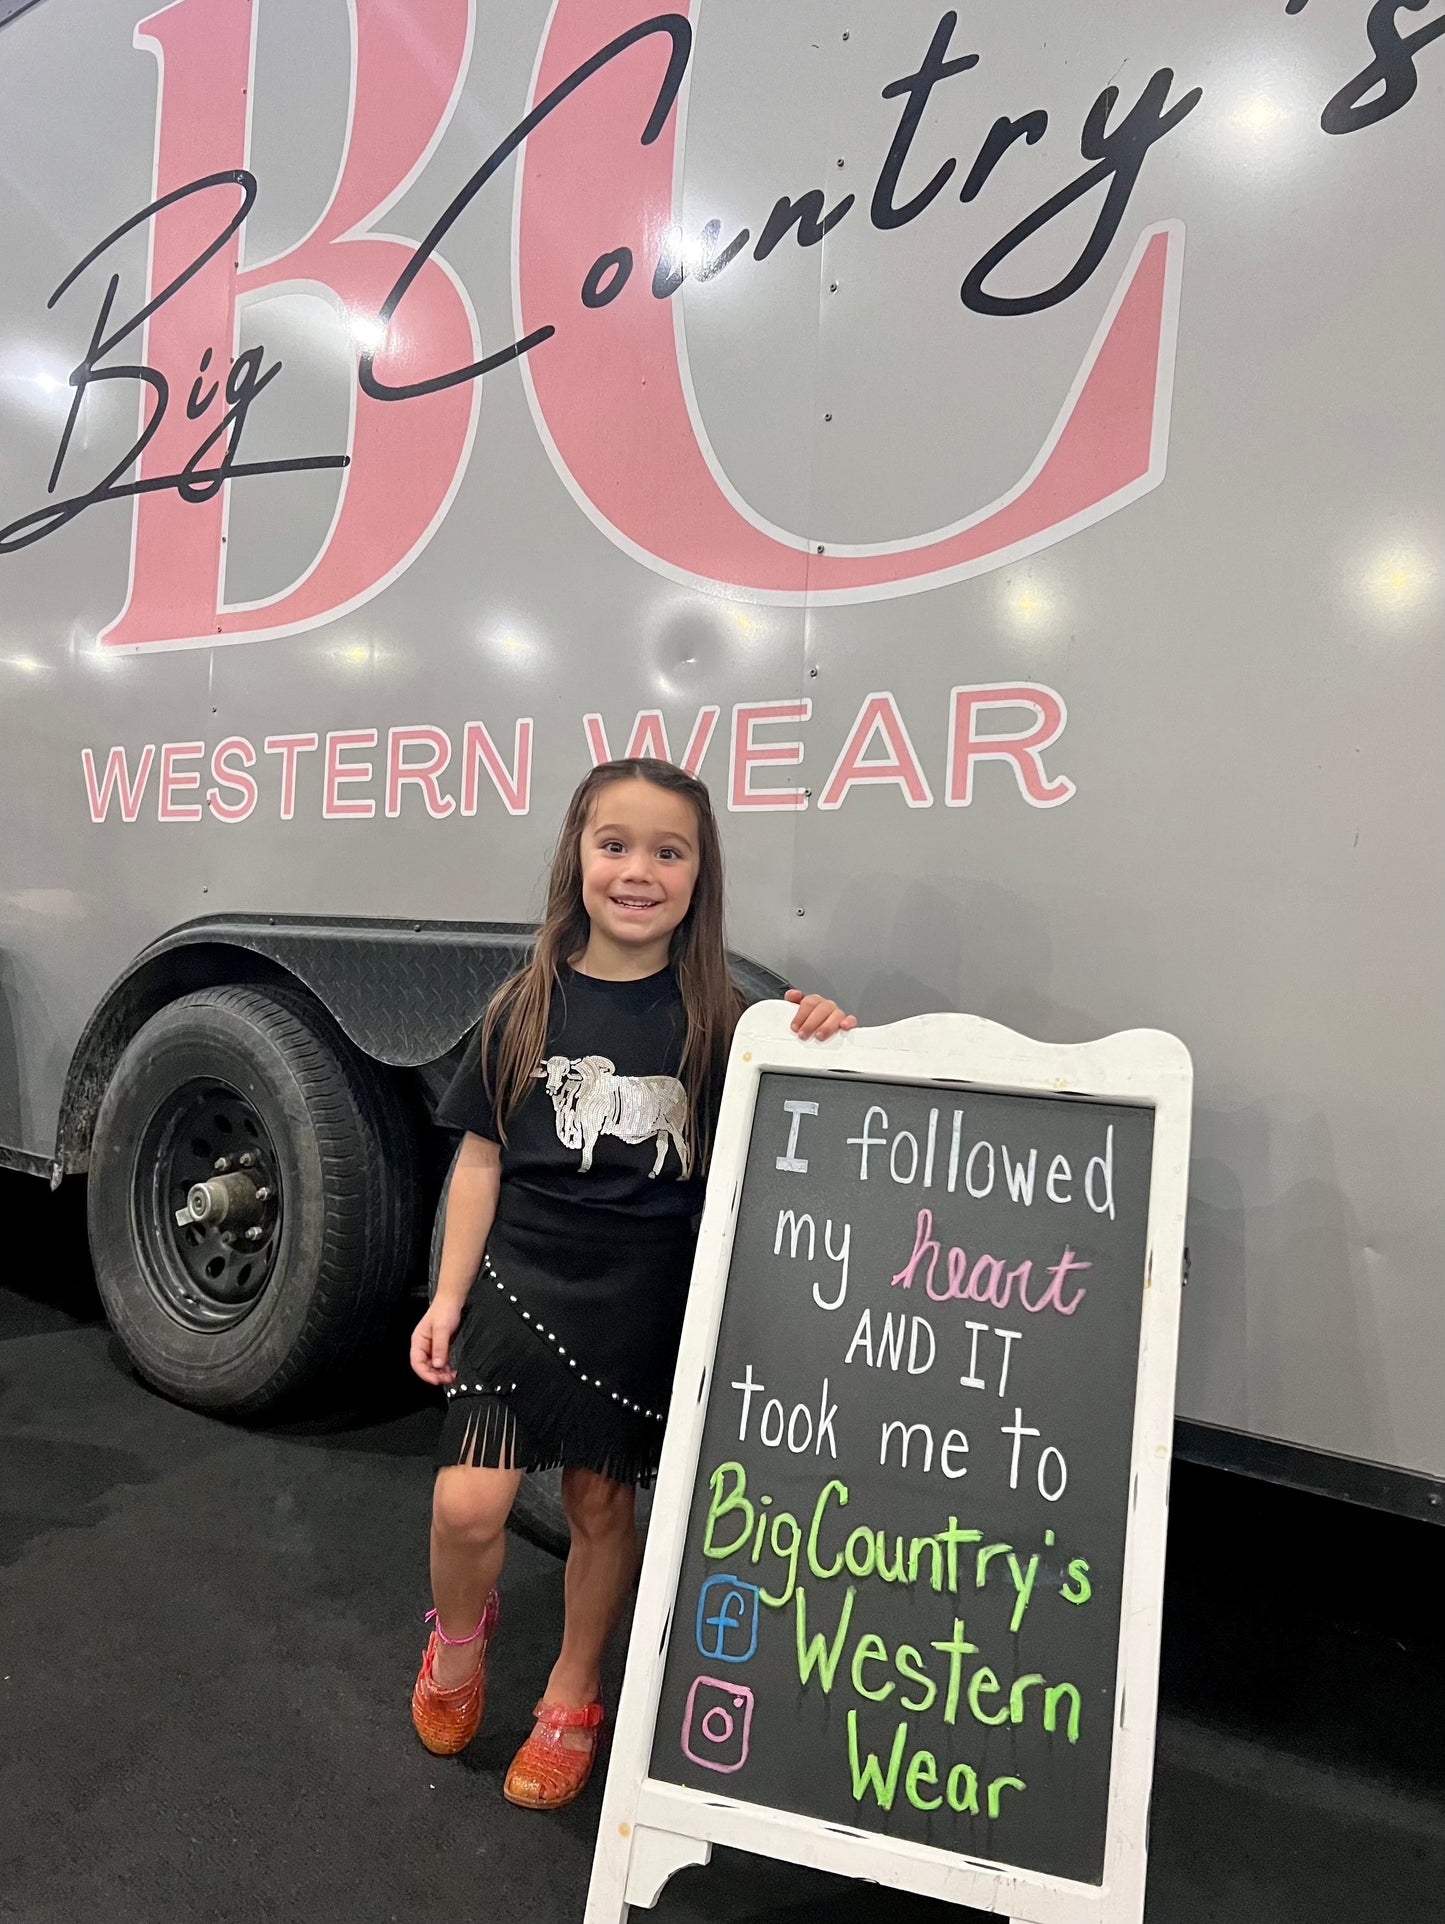 BC
Big Country's
WESTERN WEAR
I followed
my heart
AND IT
took me to
BigCountry's
f Western
Wear